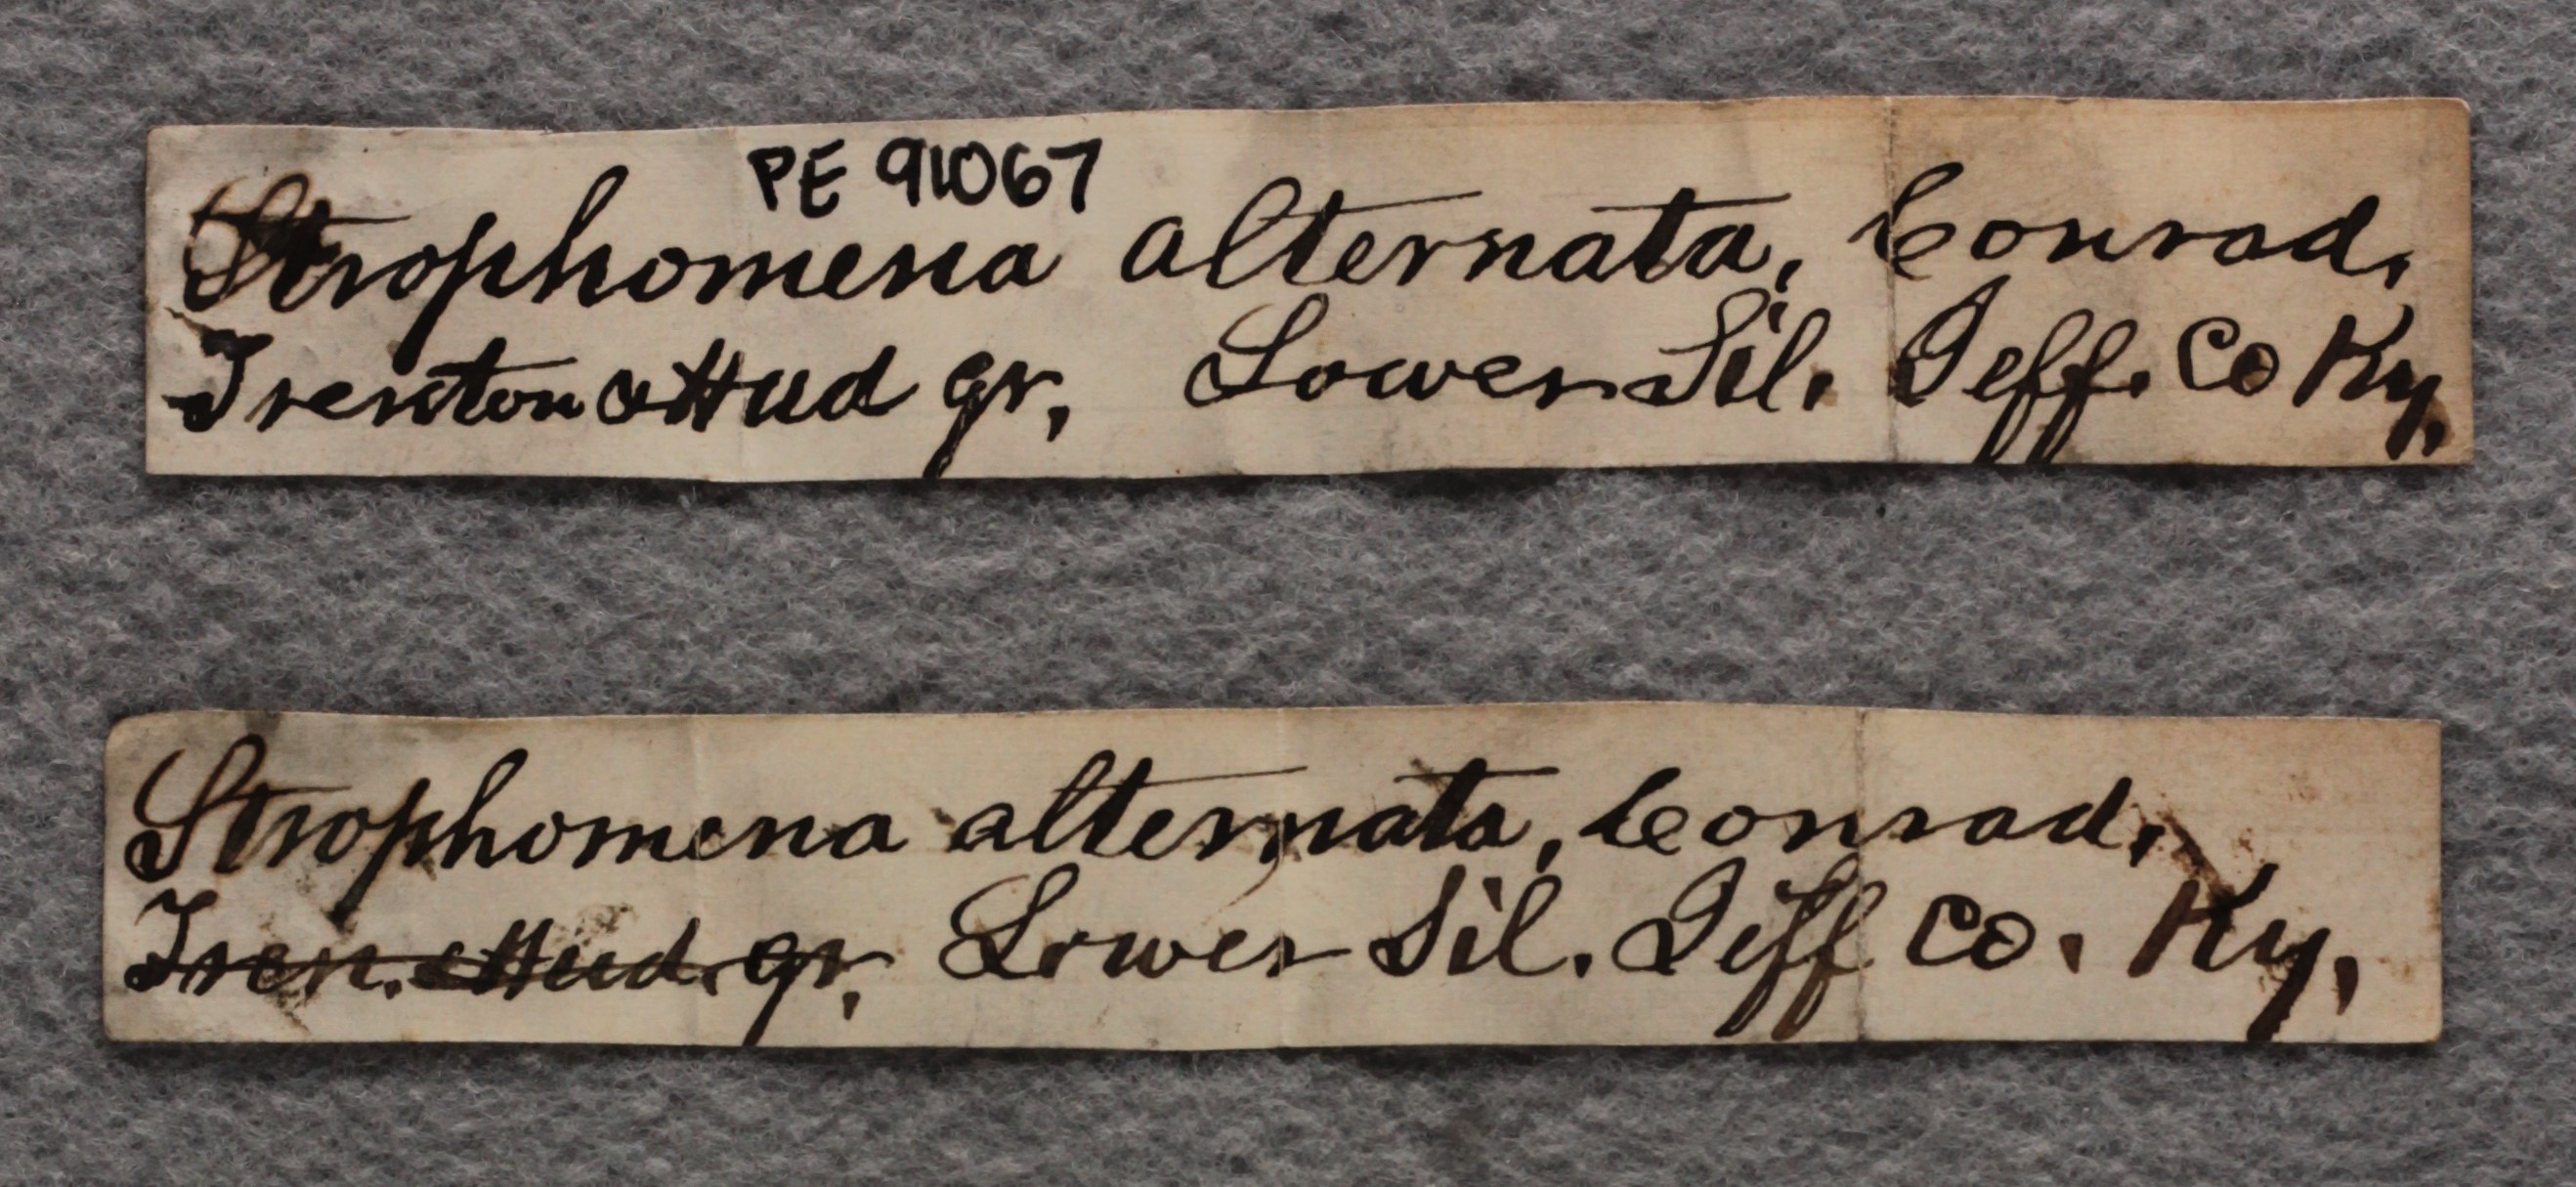 PE 91067
Strophomena alternata, Conrad.
Trenton & Hud gr, Lower Sil. Jeff. Co Ky,
Strophomena alternata, Conrad.
Tren. & Hud. gr, Lower Sil. Jeff Co. Ky,